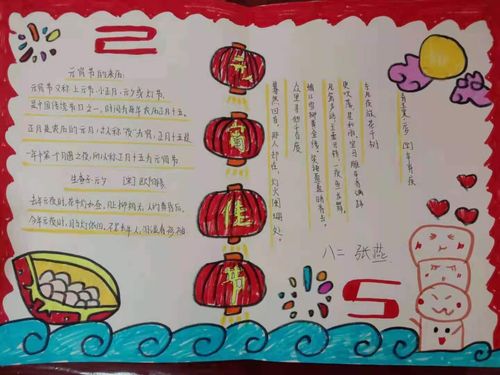 己
元宵节的来历:
元宵节又称上元节、小正月、元夕或灯节,
是中国传统节日之一,时间为每年农历正月十五。
正月是农历的元月,古人称"夜"为宵,正月十五是
一年中第一个月圆之夜,所以称正月十五为元宵节
生查子·元夕 [宋] 欧阳修
去年元夜时,花市灯如昼。月上柳梢头,人约黄昏后。
今年元夜时,月与灯依旧。不见去年人,泪湿春衫袖
元
宵
佳
节
青玉案·元夕 辛弃疾
东风夜放花千树
更吹落,星如雨。宝马雕车香满路
凤箫声动,玉壶光转,一夜鱼龙舞。
蛾儿雪柳黄金缕,笑语盈盈暗香去。
众里寻他千百度
蓦然回首,那人却在,灯火阑珊处。
八二 张燕
5